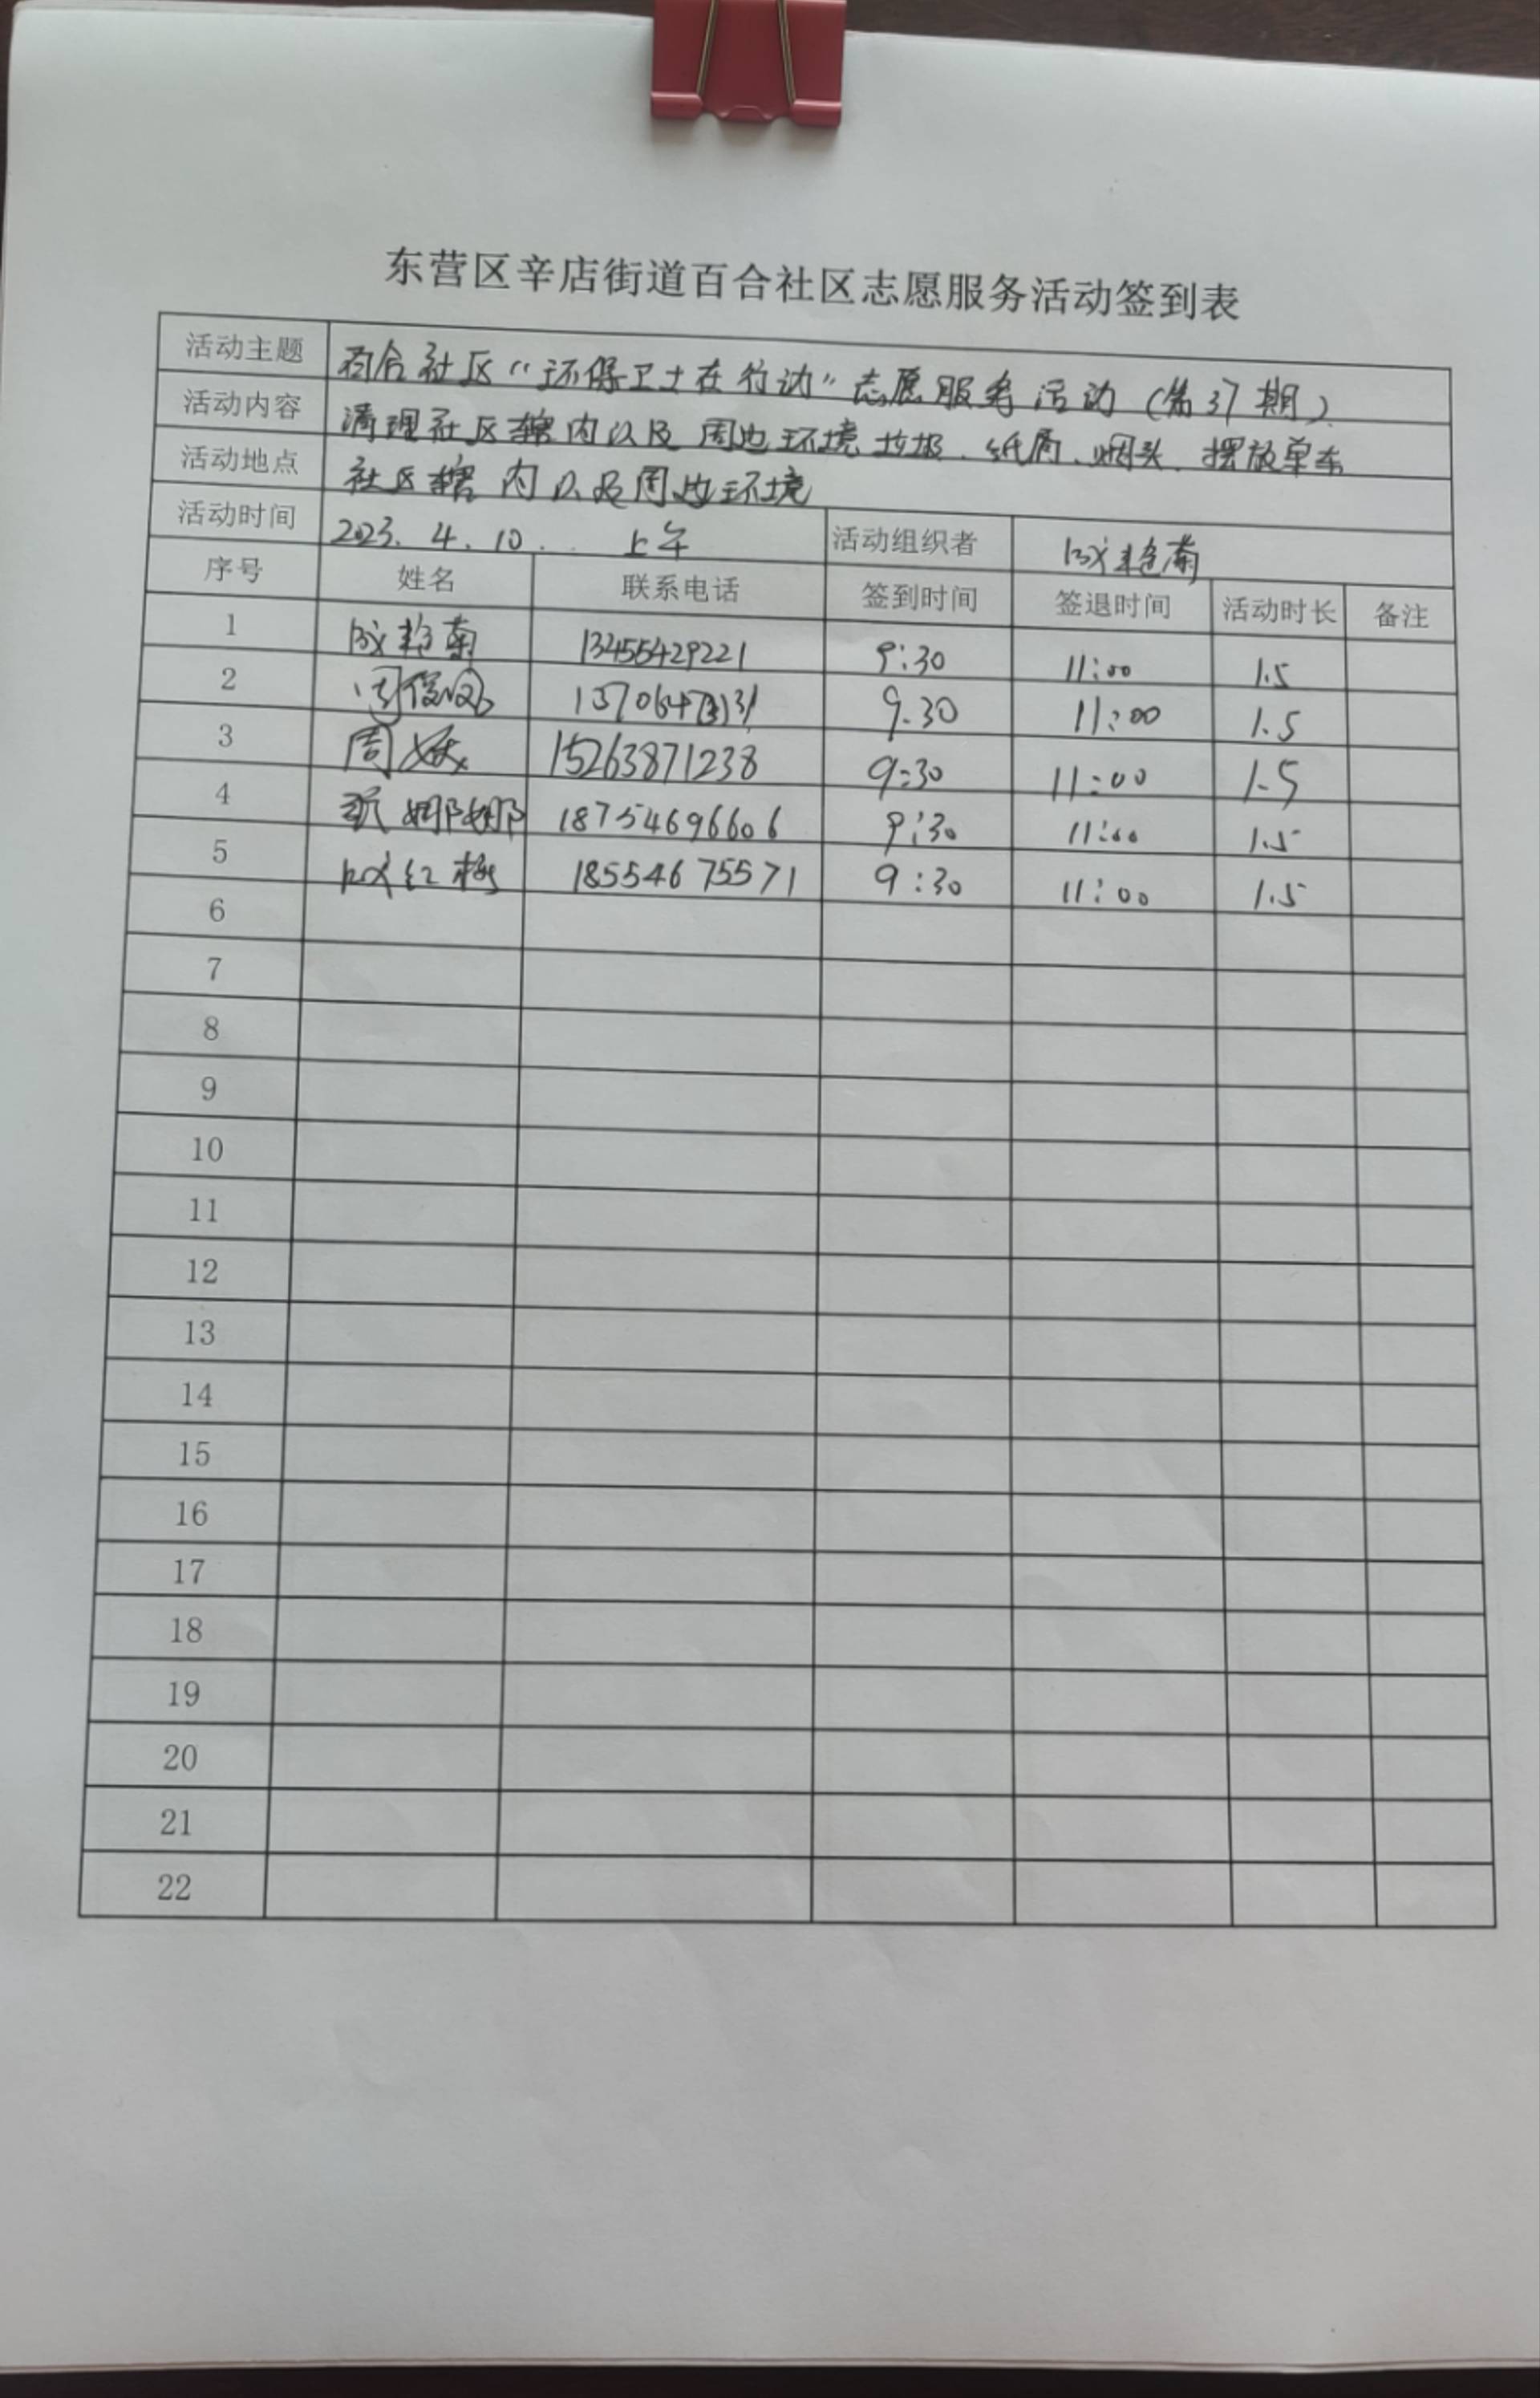 东营区辛店街道百合社区志愿服务活动签到表
活动主题 百合社区“环保卫士在行动”志愿服务活动(第37期)
活动内容 清理社区辖内以及周边环境垃圾、纸屑、烟头、摆放单车
活动地点 社区辖内以及周边环境
活动时间 2023.4.10. 上午 活动组织者 成艳菊
序号 姓名 联系电话 签到时间 签退时间 活动时长 备注
1 成艳菊 13455429221 9:30 11:00 1.5
2 9.30 11:00 1.5
3 周 15263871238 9:30 11:00 1.5
4 娜娜 18754696606 9:30 11:00 1.5
5 成红梅 18554675571 9:30 11:00 1.5
6
7
8
9
10
11
12
13
14
15
16
17
18
19
20
21
22